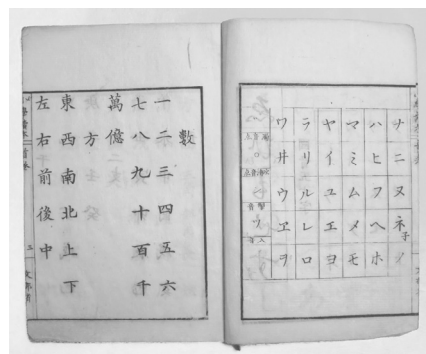 ナニヌネ子ノ
ハヒフヘホ
マミムメモ
ヤイユエヨ
ラリルレロ
ワ井ウヱヲ
數
一二三四五六
七八九十百千
萬億
方
東西南北上下
左右前後中